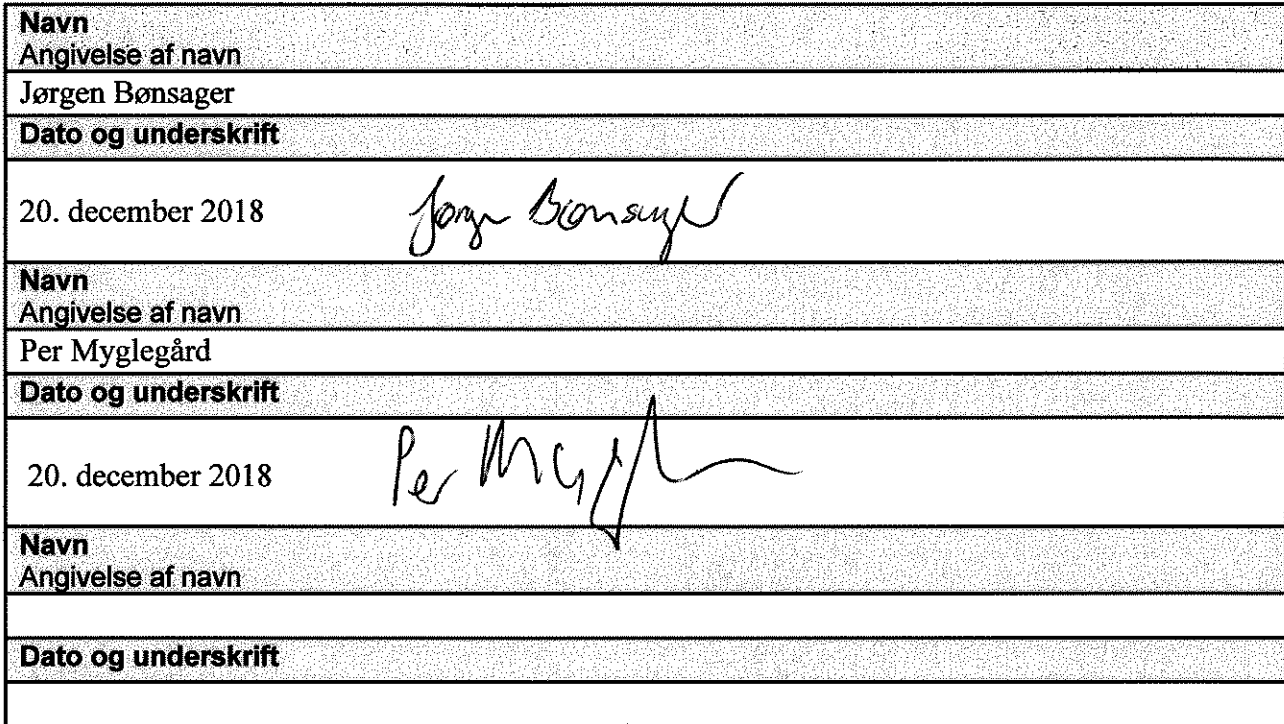 Navn
Angivelse af navn
Jørgen Bønsager
Dato og underskrift
20. december 2018 Jørgen Bønsager
Navn
Angivelse af navn
Per Myglegård
Dato og underskrift
20. december 2018 Per
Navn
Angivelse af navn
Dato og underskrift